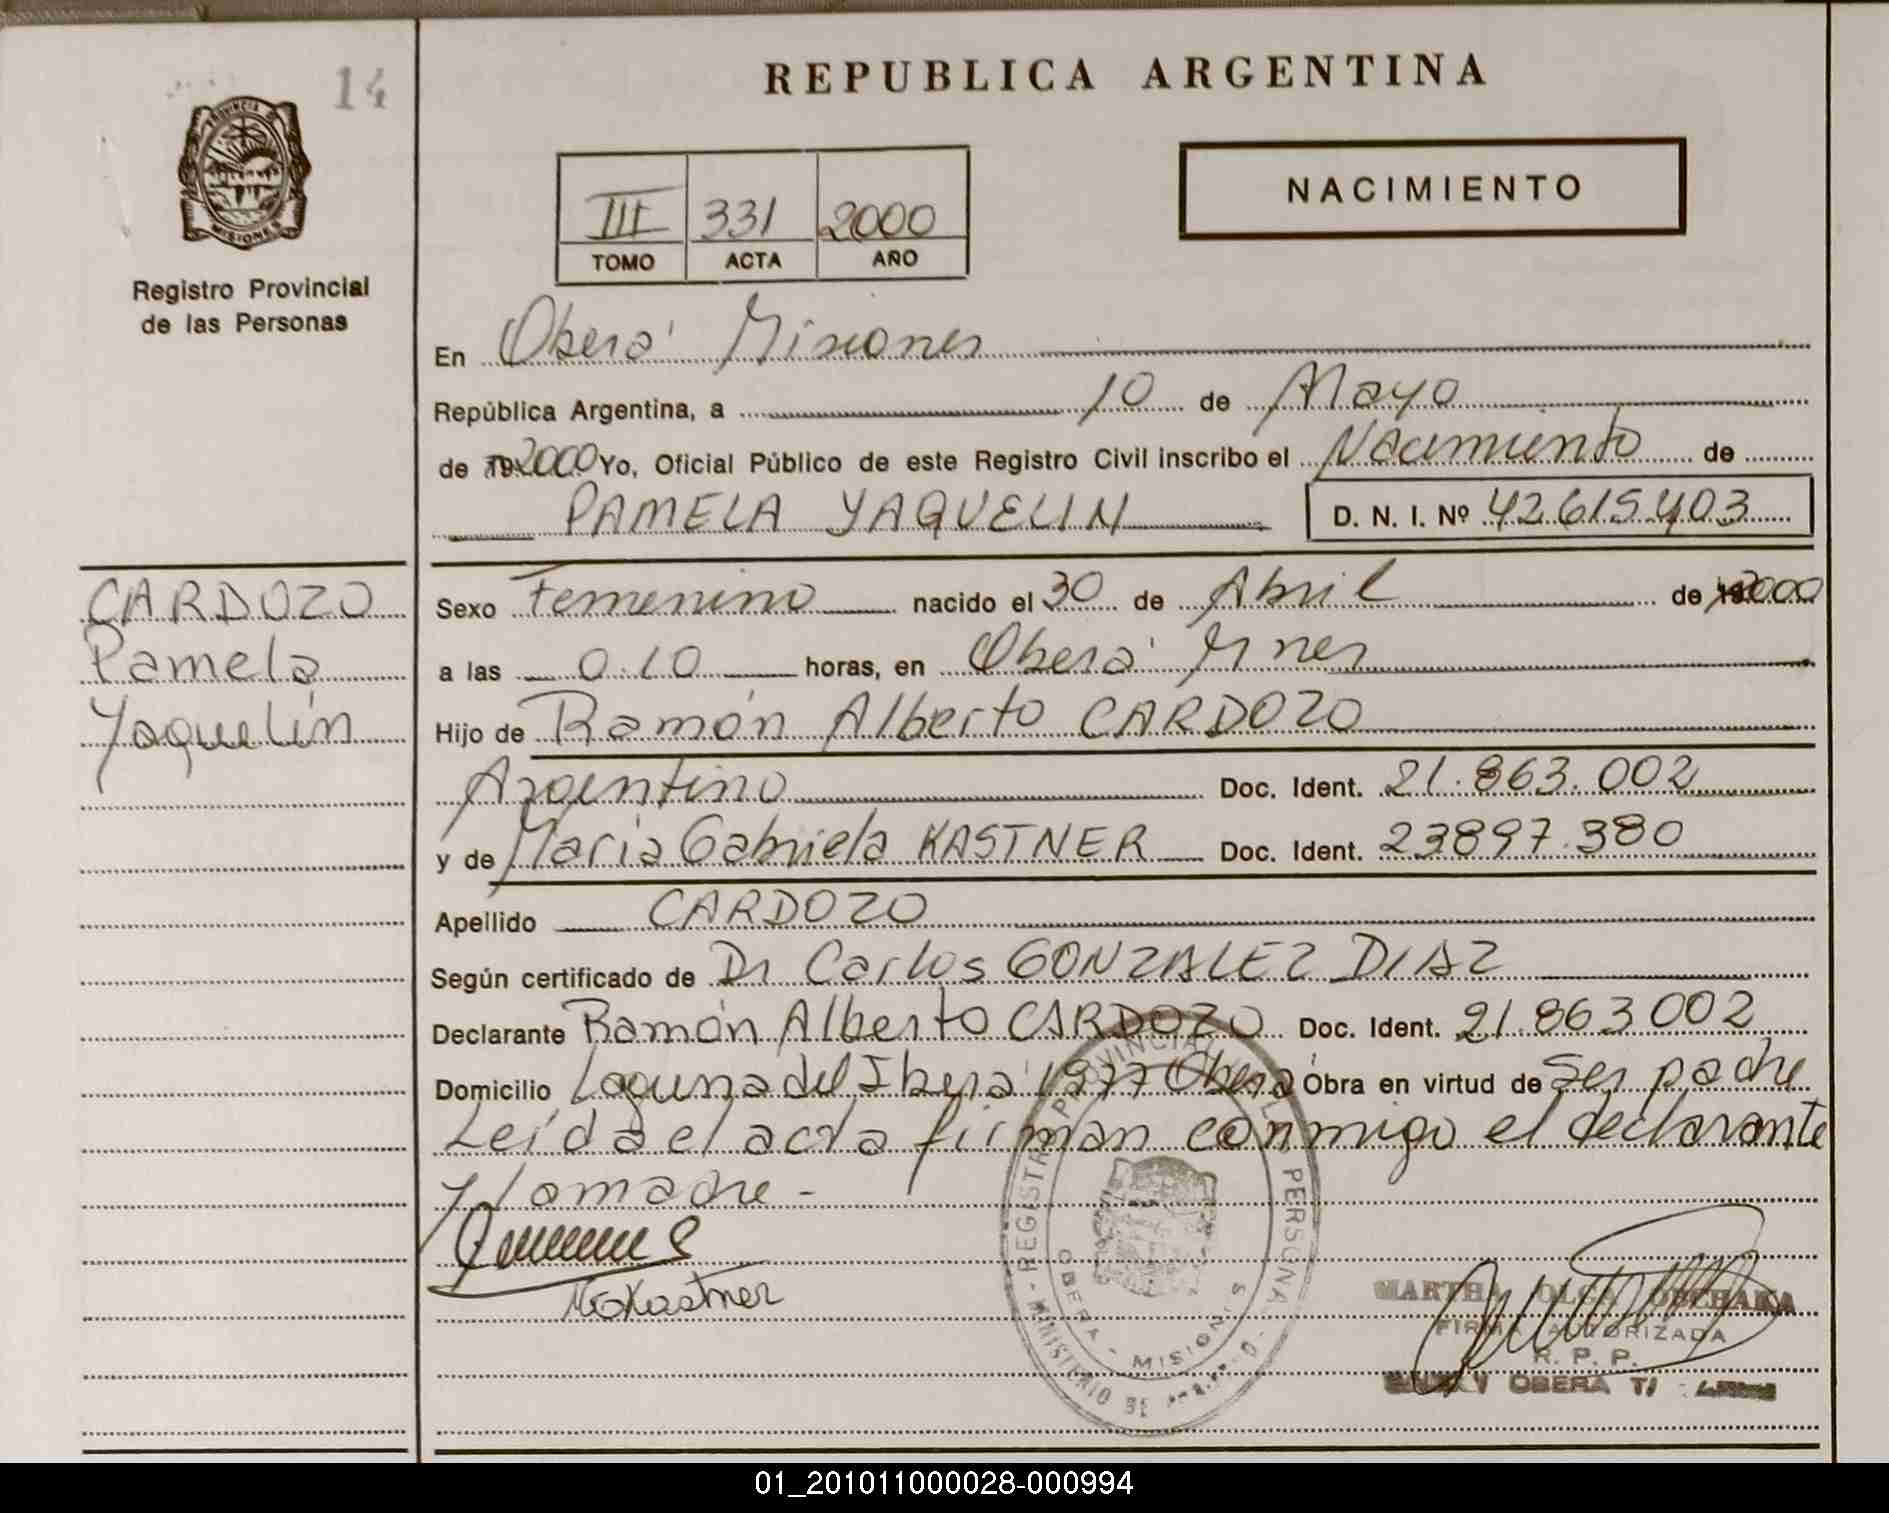 14
PROVINCIA DE
MISIONES
Registro Provincial
de las Personas
REPUBLICA ARGENTINA
III 331 2000
TOMO ACTA AÑO
NACIMIENTO
En Oberá Misiones
República Argentina, a 10 de Mayo
de 19 2000 Yo, Oficial Público de este Registro Civil inscribo el Nacimiento de
PAMELA YAQUELIN D. N. I. Nº 42.615.403
CARDOZO
Pamela
Yaquelin
Sexo Femenino nacido el 30 de Abril de 2000
a las 0.10 horas, en Oberá Mnes
Hijo de Ramón Alberto CARDOZO
Argentino Doc. Ident. 21.863.002
y de María Gabriela KASTNER Doc. Ident. 23897.380
Apellido CARDOZO
Según certificado de Dr Carlos GONZALEZ DIAZ
Declarante Ramón Alberto CARDOZO Doc. Ident. 21.863002
Domicilio Laguna del Iberá 1977 Oberá Obra en virtud de Ser padre
Leída el acta firman conmigo el declarante
y la madre -
MGKastner
REGISTRO PROVINCIAL DE LAS PERSONAS - MINISTERIO DE
OBERA - MISIONES
MARTHA OLGA
FIRMA AUTORIZADA
R. P. P.
OBERA
01_201011000028-000994